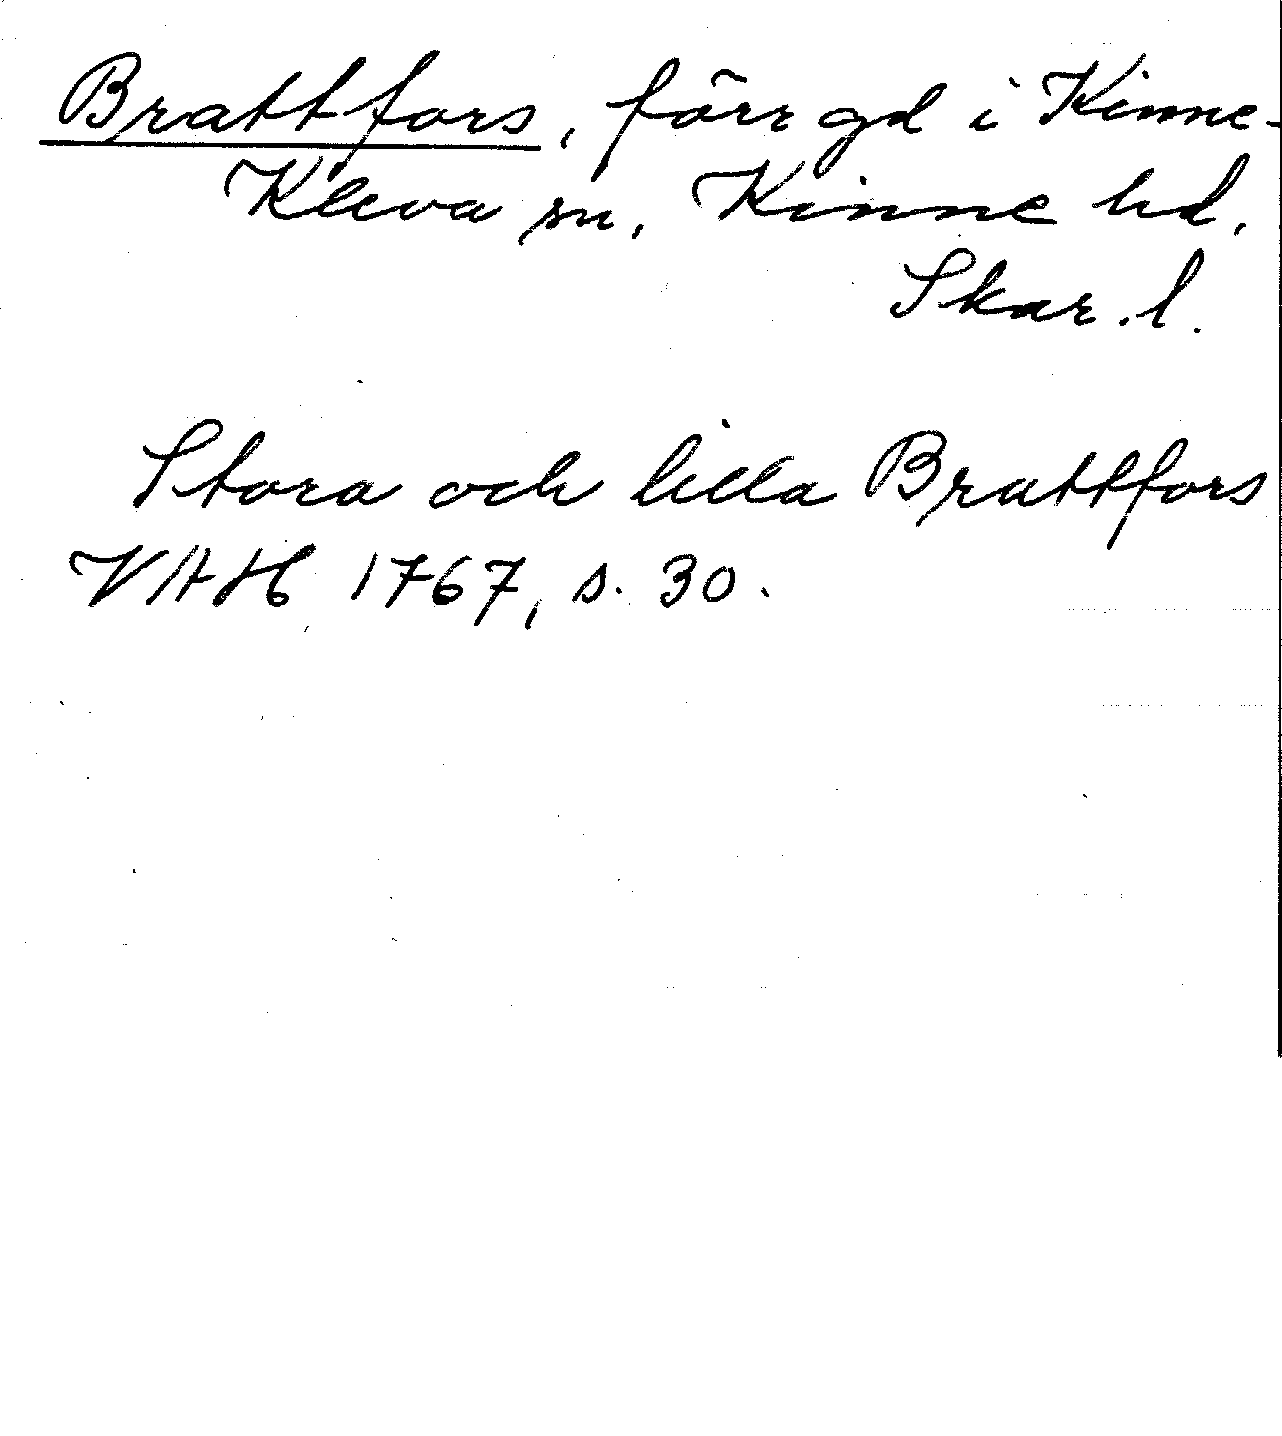 Brattfors, förr gd i Kinne-
Kleva sn, Kinne hd,
Skar. l.
Stora och lilla Brattfors
VAH 1767, s. 30.